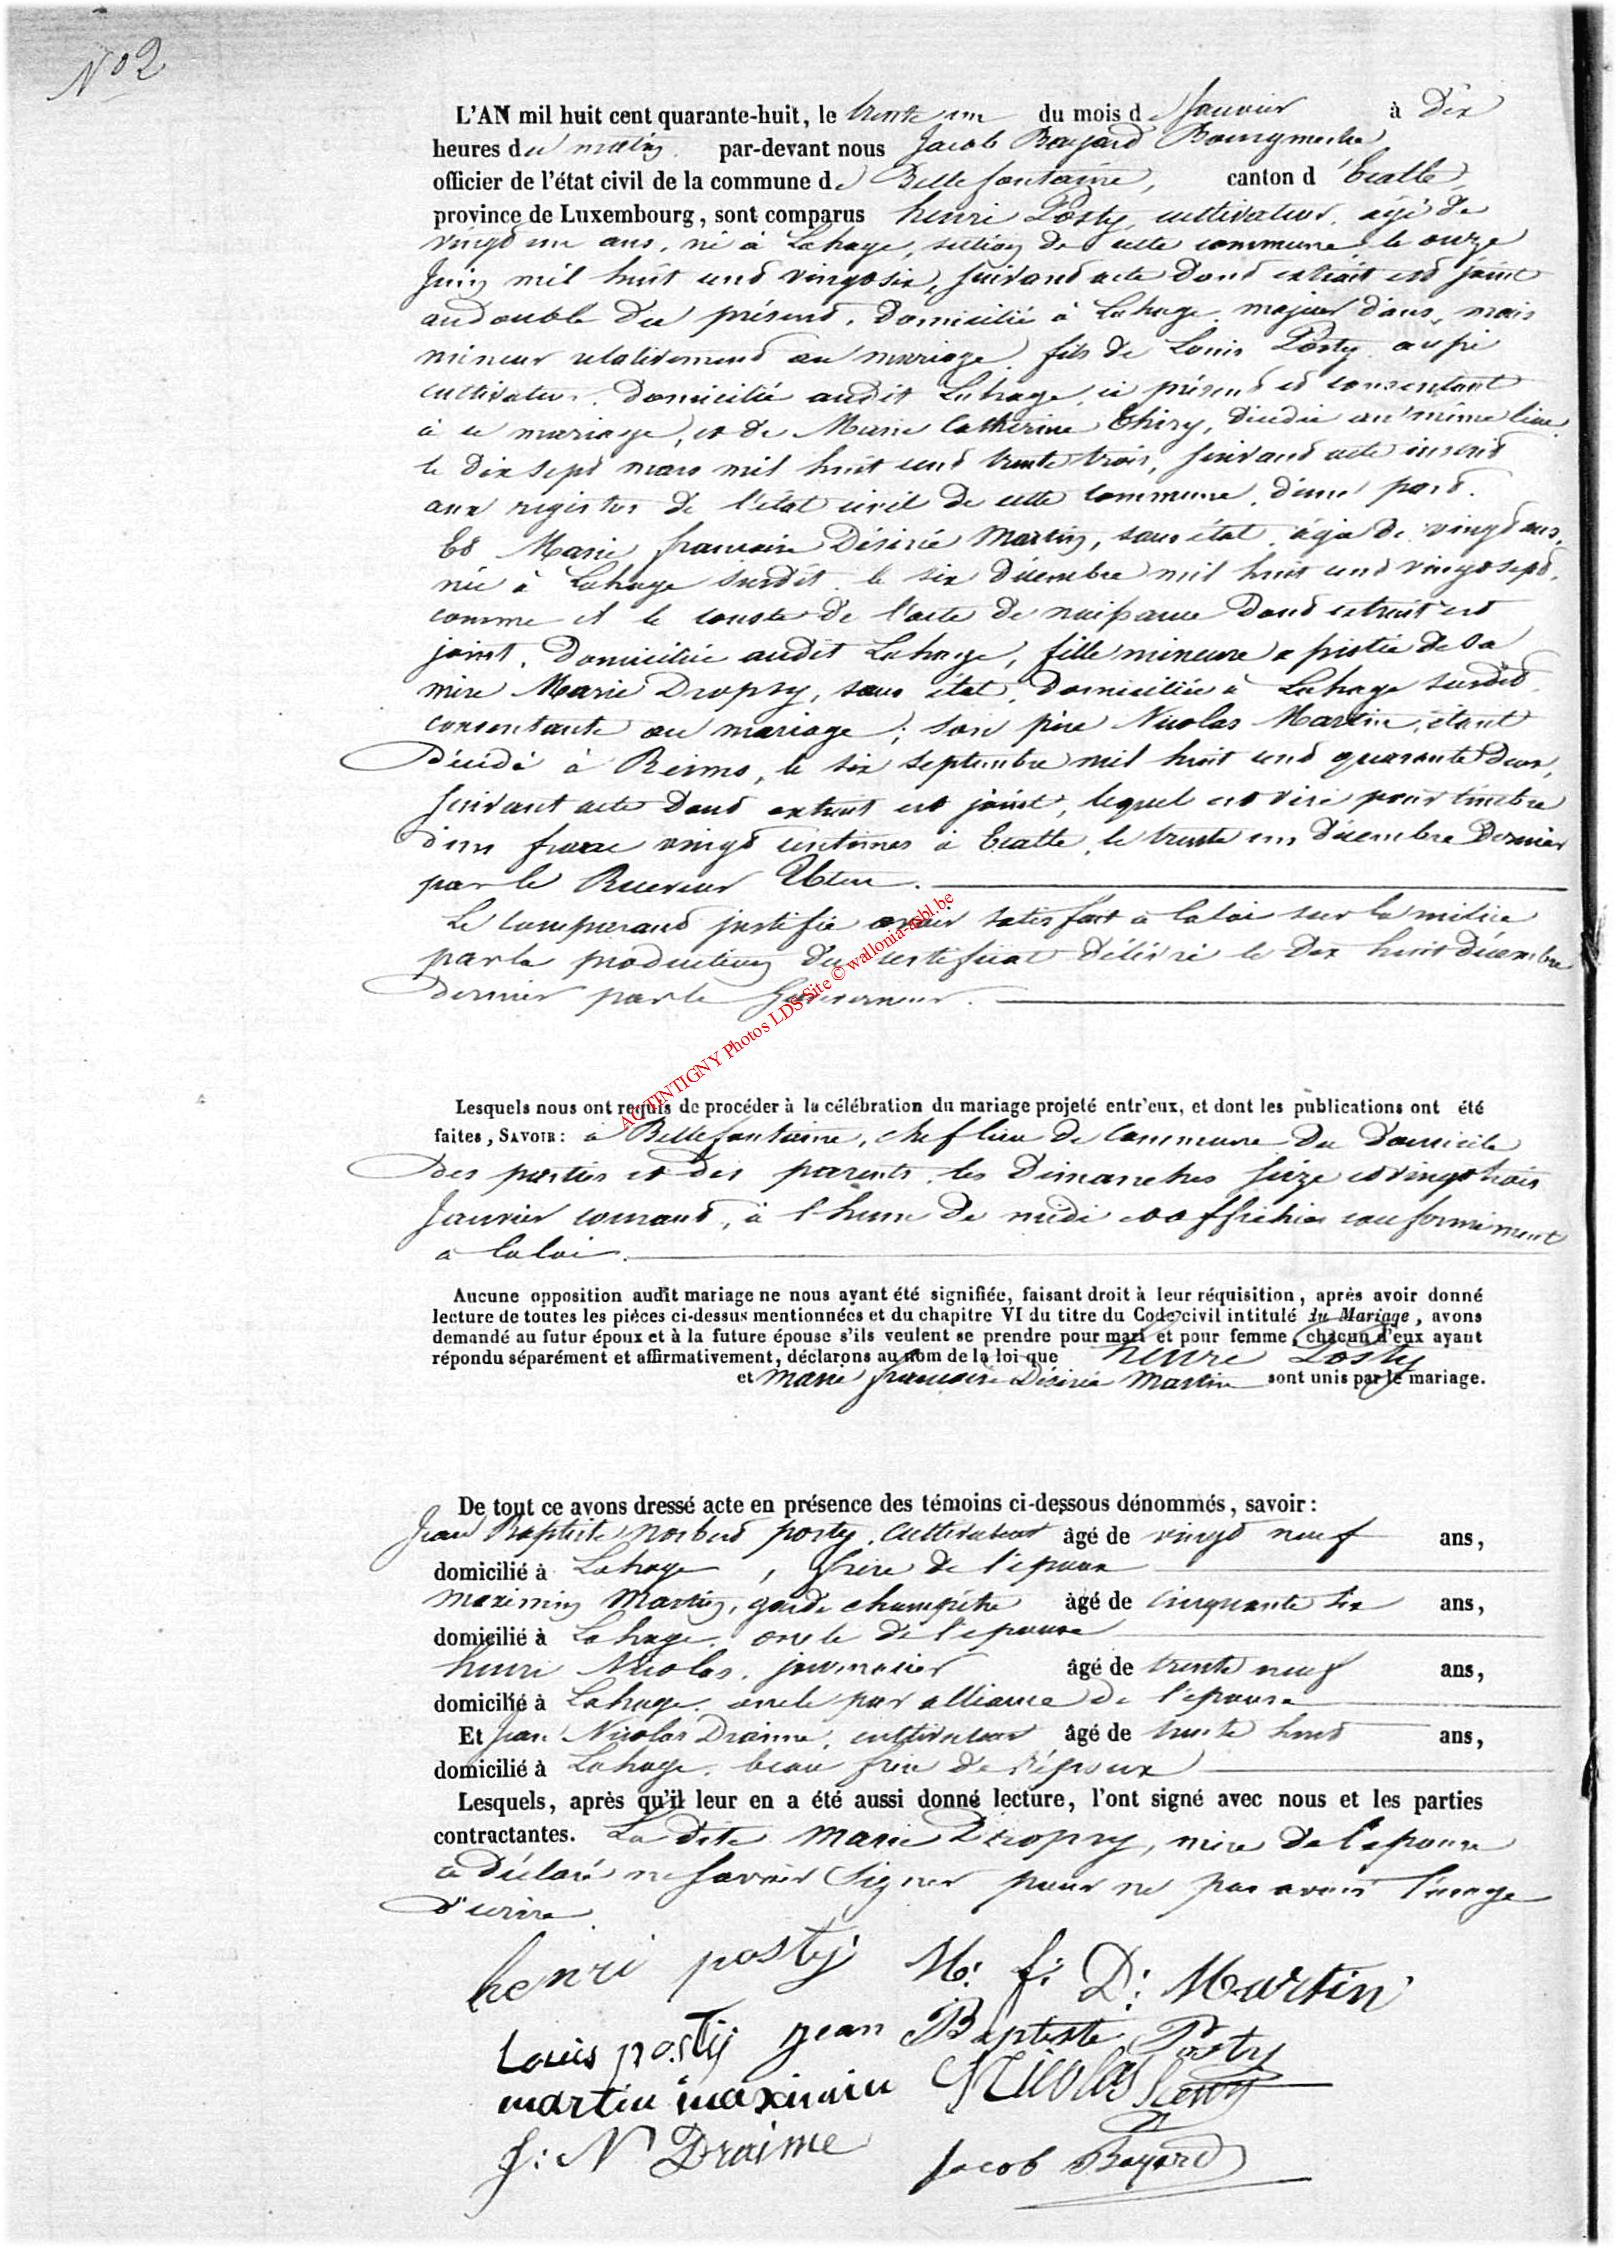 N° 2
L'AN mil huit cent quarante-huit, le trente un du mois de Janvier à dix
heures du matin par-devant nous Jacob Bayard Bourgmestre
officier de l'état civil de la commune de Bellefontaine, canton d'Etalle,
province de Luxembourg, sont comparus henri Posty, cultivateur, agé de
vingt un ans, né à Lahage, section de cette commune le onze
Juin mil huit cent vingt six, suivant acte dont extrait est joint
au double du présent, domicilié à Lahage, majeur d'ans, mais
mineur relativement au mariage, fils de Louis Posty
cultivateur, domicilié audit Lahage, ci présent et consentant
à ce mariage, et de Marie Catherine Thiry, décédée au même lieu
le dix sept mars mil huit cent trente trois, suivant acte inscrit
aux registres de l'état civil de cette commune, d'une part.
Et Marie françoise Désirée Martin, sans état, agée de vingt ans,
née à Lahage susdit, le six décembre mil huit cent vingt sept,
comme il le conste de l'acte de naissance dont extrait est
joint, domiciliée audit Lahage, fille mineure assistée de sa
mère Marie Dropsy, sans état, domiciliée à Lahage susdit,
consentante au mariage; son père Nicolas Martin, étant
décédé à Reims, le six septembre mil huit cent quarante deux,
suivant acte dont extrait est joint, lequel est visé pour timbre
d'un franc vingt centimes à Etalle, le trente un décembre dernier
par le Receveur
Le comparant justifie avoir satisfait à la loi sur la milice
par la production du certificat délivré le dix huit décembre
dernier par le Gouverneur.
ACTINTIGNY Photos LDS Site © wallonia-asbl.be
Lesquels nous ont requis de procéder à la célébration du mariage projeté entr'eux, et dont les publications ont été
faites, SAVOIR: à Bellefontaine, chef lieu de Commune du domicile
des parties et des parents, les Dimanches seize et vingt trois
Janvier courant, à l'heure de midi et affichées conformément
à la loi.
Aucune opposition audit mariage ne nous ayant été signifiée, faisant droit à leur réquisition, après avoir donné
lecture de toutes les pièces ci-dessus mentionnées et du chapitre VI du titre du Code civil intitulé du Mariage, avons
demandé au futur époux et à la future épouse s'ils veulent se prendre pour mari et pour femme, chacun d'eux ayant
répondu séparément et affirmativement, déclarons au nom de la loi que henri Posty
et Marie françoise Désirée Martin sont unis par le mariage.
De tout ce avons dressé acte en présence des témoins ci-dessous dénommés, savoir:
Jean Baptiste Norbert posty, cultivateur âgé de vingt neuf ans,
domicilié à Lahage, frère de l'epoux
maximin Martin, garde champêtre âgé de cinquante six ans,
domicilié à Lahage, oncle de l'epouse
henri Nicolas, journalier âgé de trente neuf ans,
domicilié à Lahage, oncle par alliance de l'epouse
Et Jean Nicolas Draime, cultivateur âgé de trente huit ans,
domicilié à Lahage, beau frère de l'époux
Lesquels, après qu'il leur en a été aussi donné lecture, l'ont signé avec nous et les parties
contractantes. La dite Marie Dropsy, mère de l'epouse
a déclaré ne savoir signer pour ne pas avoir l'usage
d'ecrire.
henri posty M: f: D: Martin
Louis posty jean Baptiste Posty
martin maximin Nicolas henry
J: N Draime Jacob Bayard